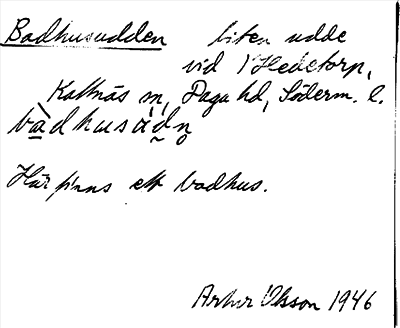 Badhusudden liten udde
vid Hedetorp,
Kattnäs sn, Daga hd, Söderm. l.
bàdhusúdn̥
Här finns ett badhus.
Artur Olsson 1946